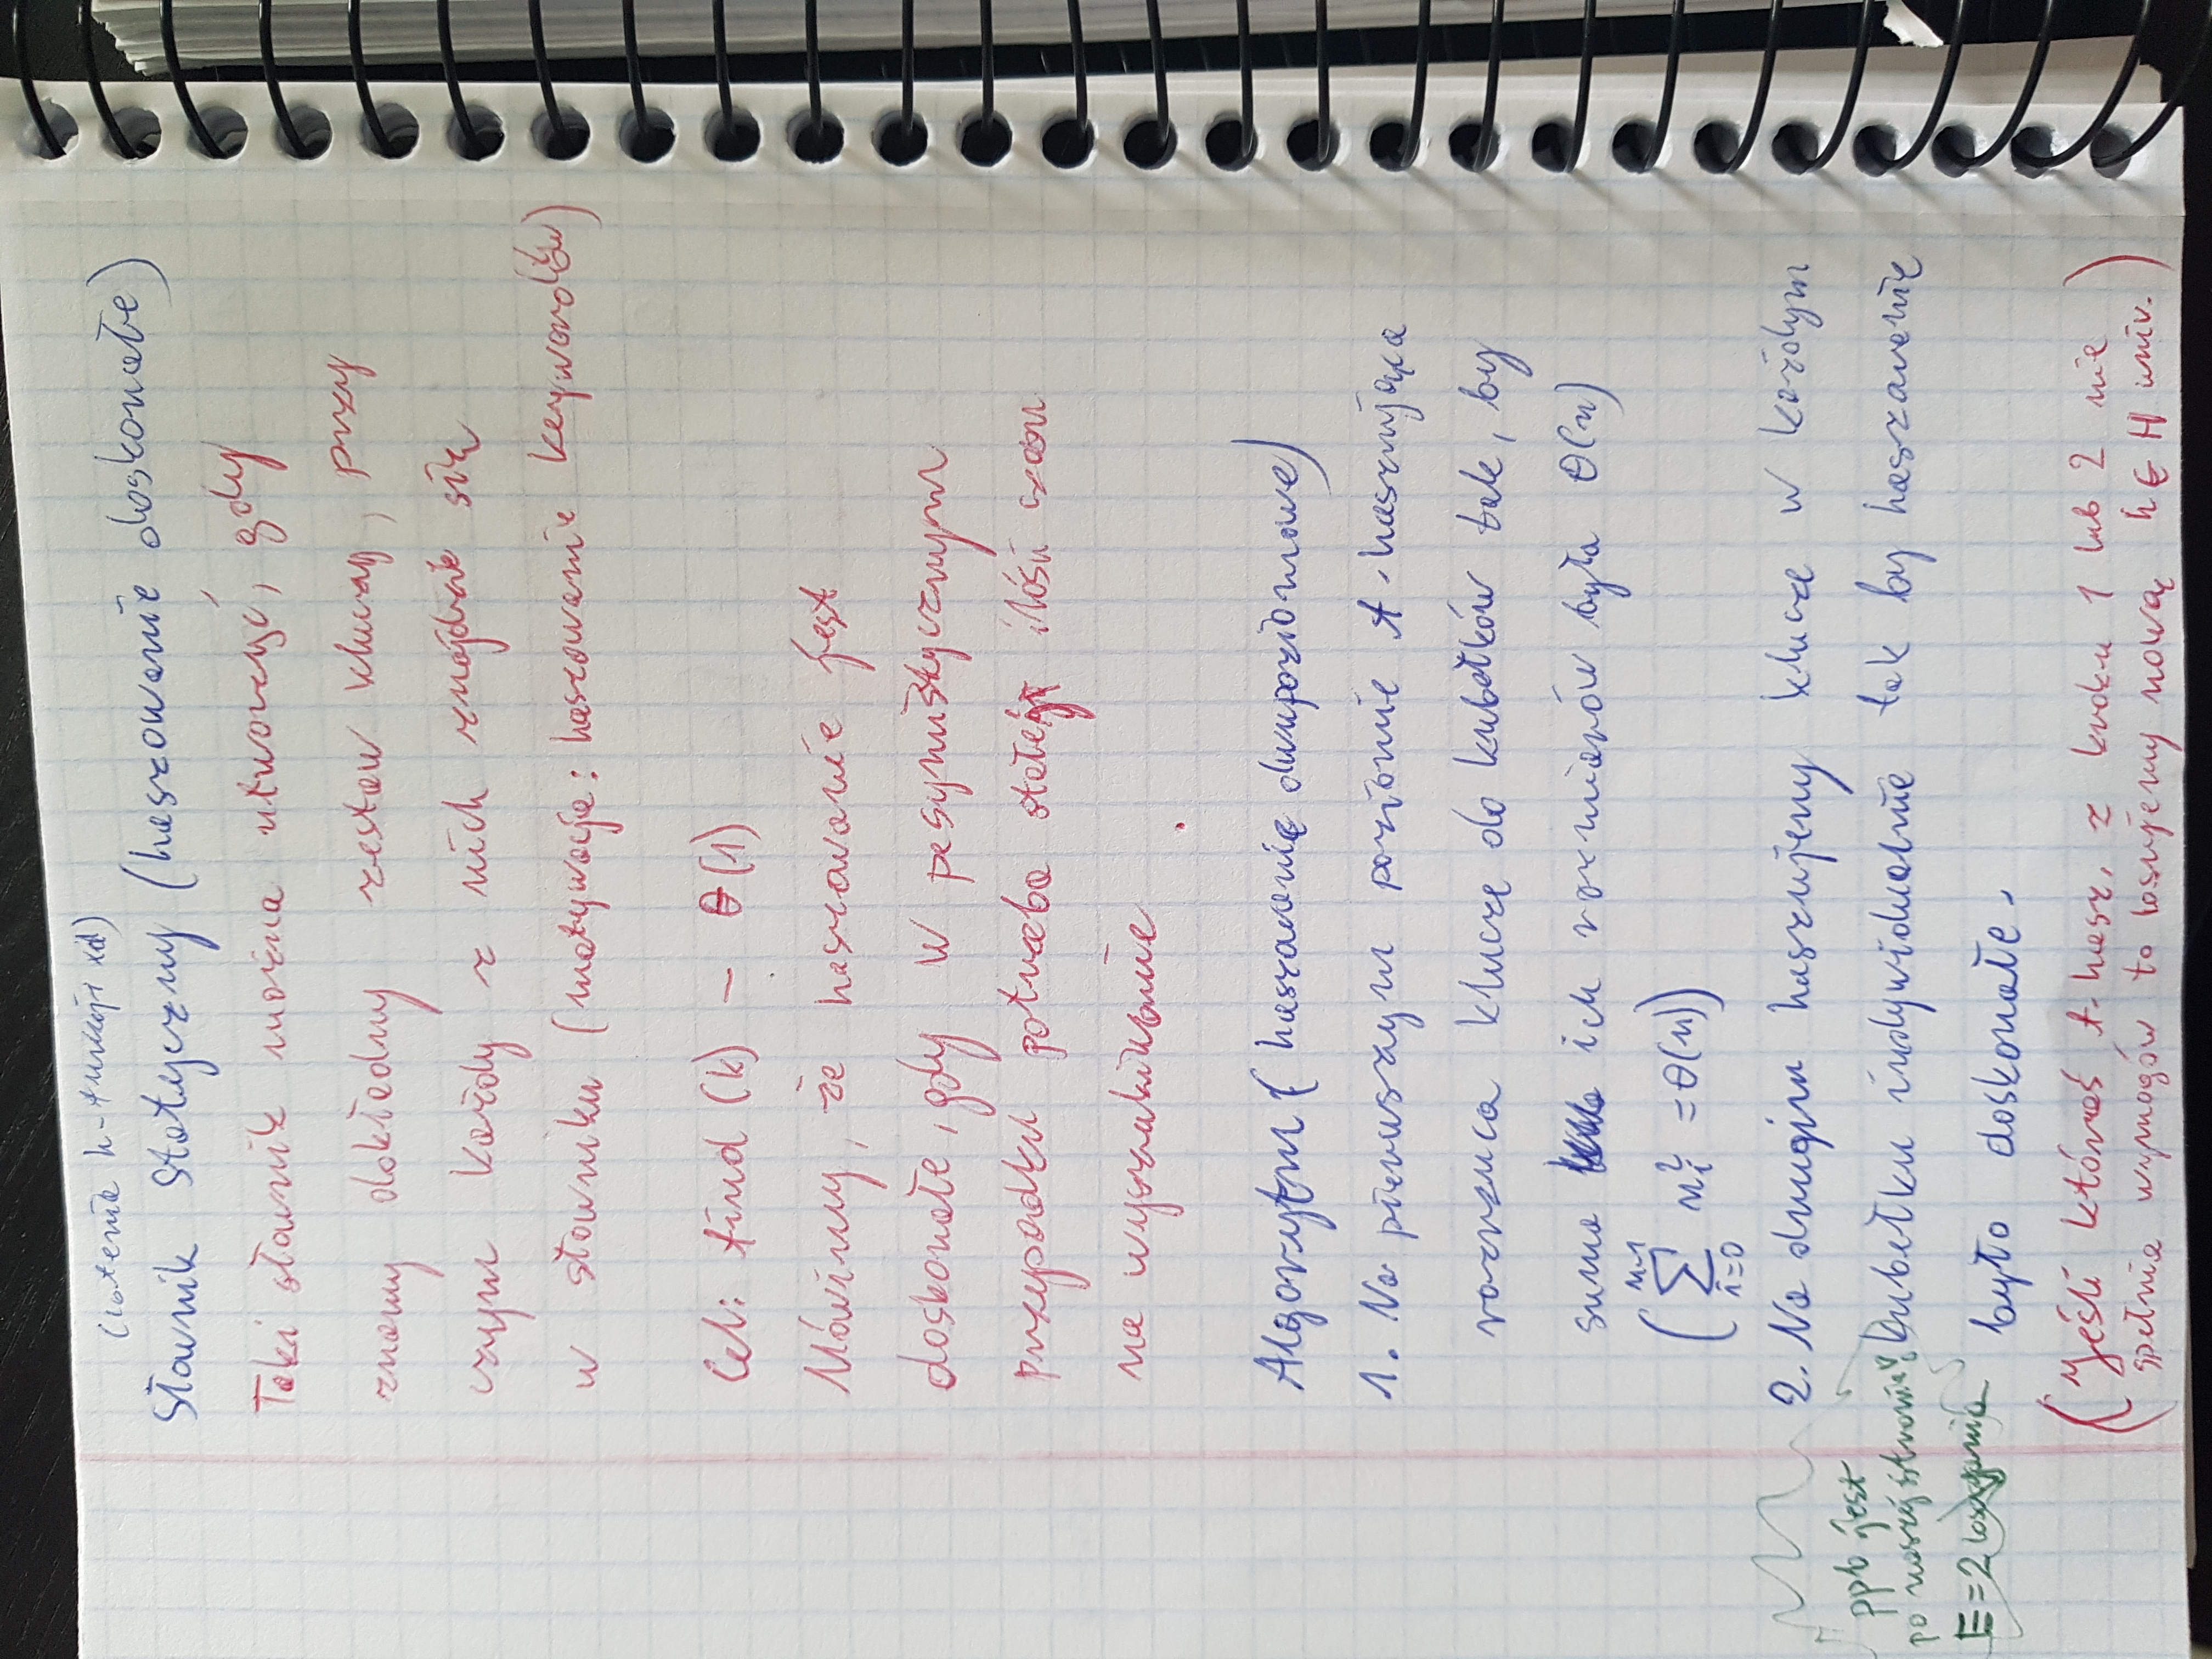 (istenie h-funkcji xd)
Słownik statyczny (haszowanie doskonałe)
Taki słownik można utworzyć, gdy
znamy dokładny zestaw kluczy, przy
czym każdy z nich znajdzie się
w słowniku (motywacja: haszowanie keywordów)
Cel: find(k) – θ(1)
Mówimy, że haszowanie jest
doskonałe, gdy w pesymistycznym
przypadku potrzeba stałej ilości czasu
na wyszukiwanie.
Algorytm (haszowanie dwupoziomowe)
1. Na pierwszym poziomie f. haszująca
rozrzuca klucze do kubełków tak, by
suma ich rozmiarów była θ(n)
(∑ᵢ₌₀ᵐ⁻¹ nᵢ² = θ(n))
2. Na drugim haszujemy klucze w każdym
kubełku indywidualnie tak by haszowanie
było doskonałe.
(Jeśli któraś f. hasz. z kroku 1 lub 2 nie
spełnia wymogów to losujemy nową h∈H univ.)
ppb jest
po naszej stronie,
E = 2 losowania